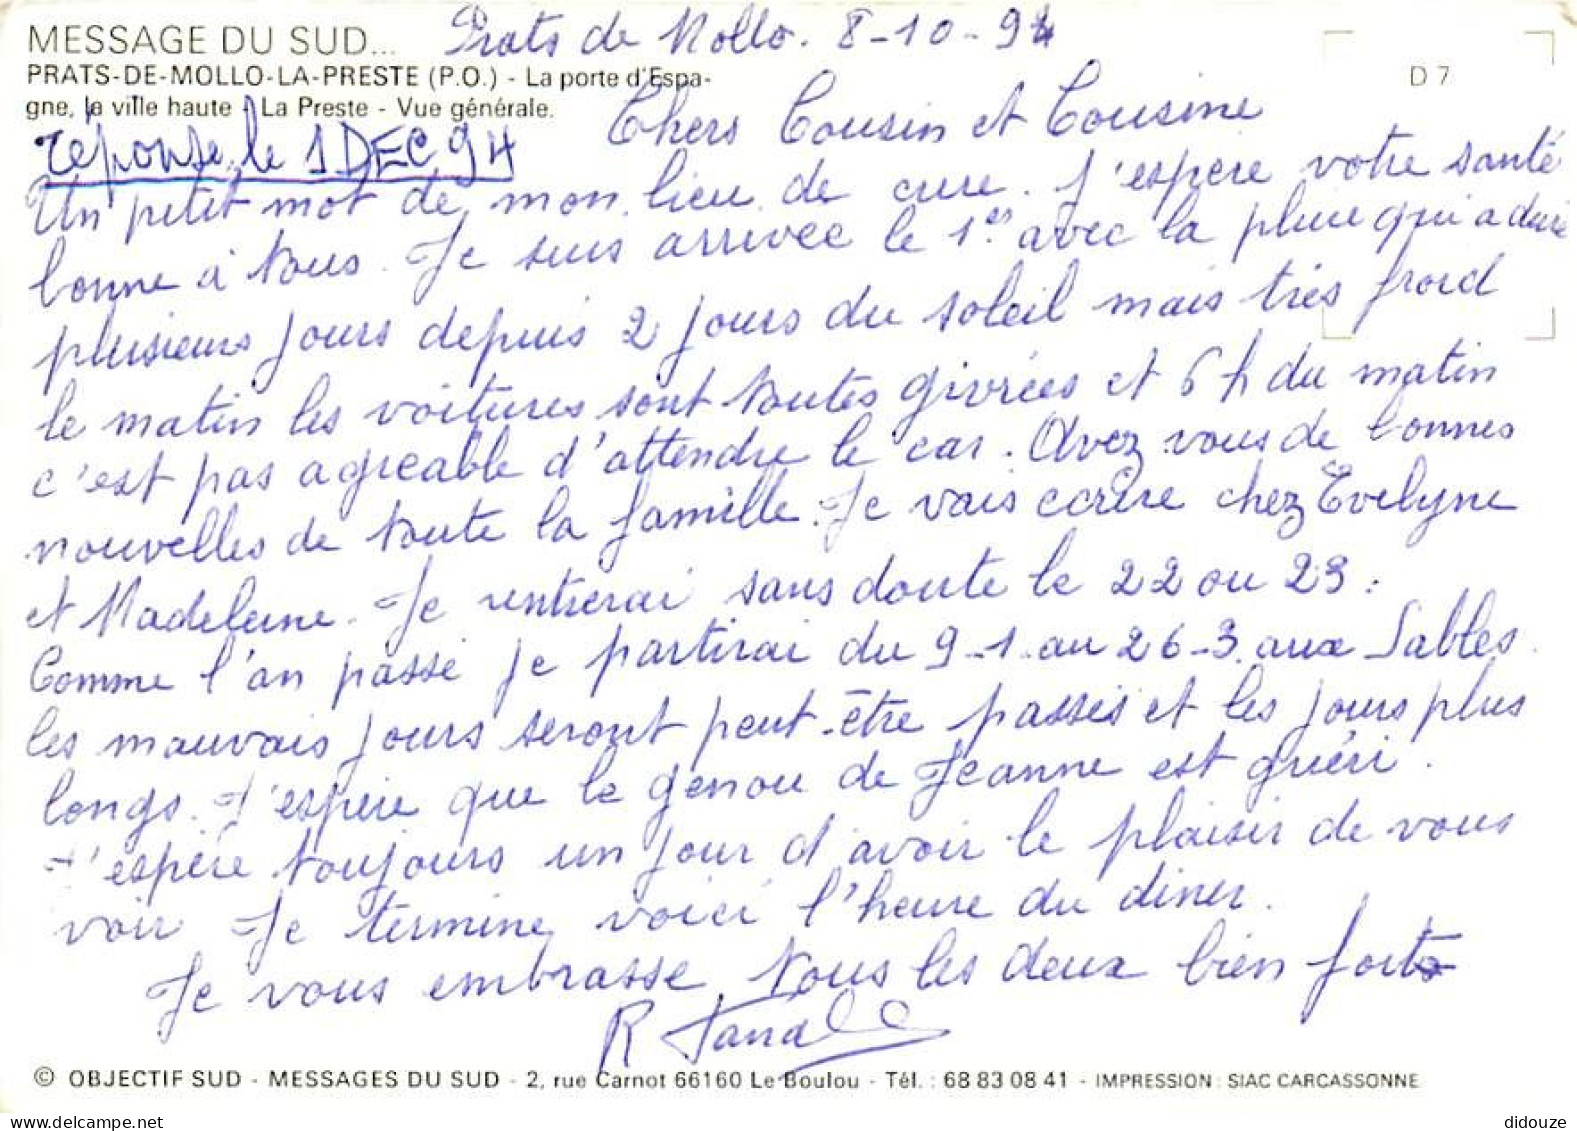 MESSAGE DU SUD... Prats de Mollo. 8-10-94
PRATS-DE-MOLLO-LA-PRESTE (P.O.) - La porte d'Espa-
gne, la ville haute - La Preste - Vue générale.
D 7
Chers Cousin et Cousine
réponse le 1 DEC 94
Un petit mot de mon lieu de cure. J'espere votre santé
bonne à tous. Je suis arrivée le 1er avec la pluie qui a durée
plusieurs jours depuis 2 jours du soleil mais très froid
le matin les voitures sont toutes givrées et 6 h du matin
c'est pas agreable d'attendre le car. Avez vous de bonnes
nouvelles de toute la famille. Je vais ecrire chez Evelyne
et Madeleine. Je rentrerai sans doute le 22 ou 23.
Comme l'an passé je partirai du 9-1 au 26-3 aux Sables.
les mauvais jours seront peut-être passés et les jours plus
longs. J'espère que le genou de Jeanne est guéri.
J'espère toujours un jour d'avoir le plaisir de vous
voir. Je termine voici l'heure du diner.
Je vous embrasse tous les deux bien forts
R
© OBJECTIF SUD - MESSAGES DU SUD - 2, rue Carnot 66160 Le Boulou - Tél. : 68 83 08 41 - IMPRESSION : SIAC CARCASSONNE
delcampe.net
didouze